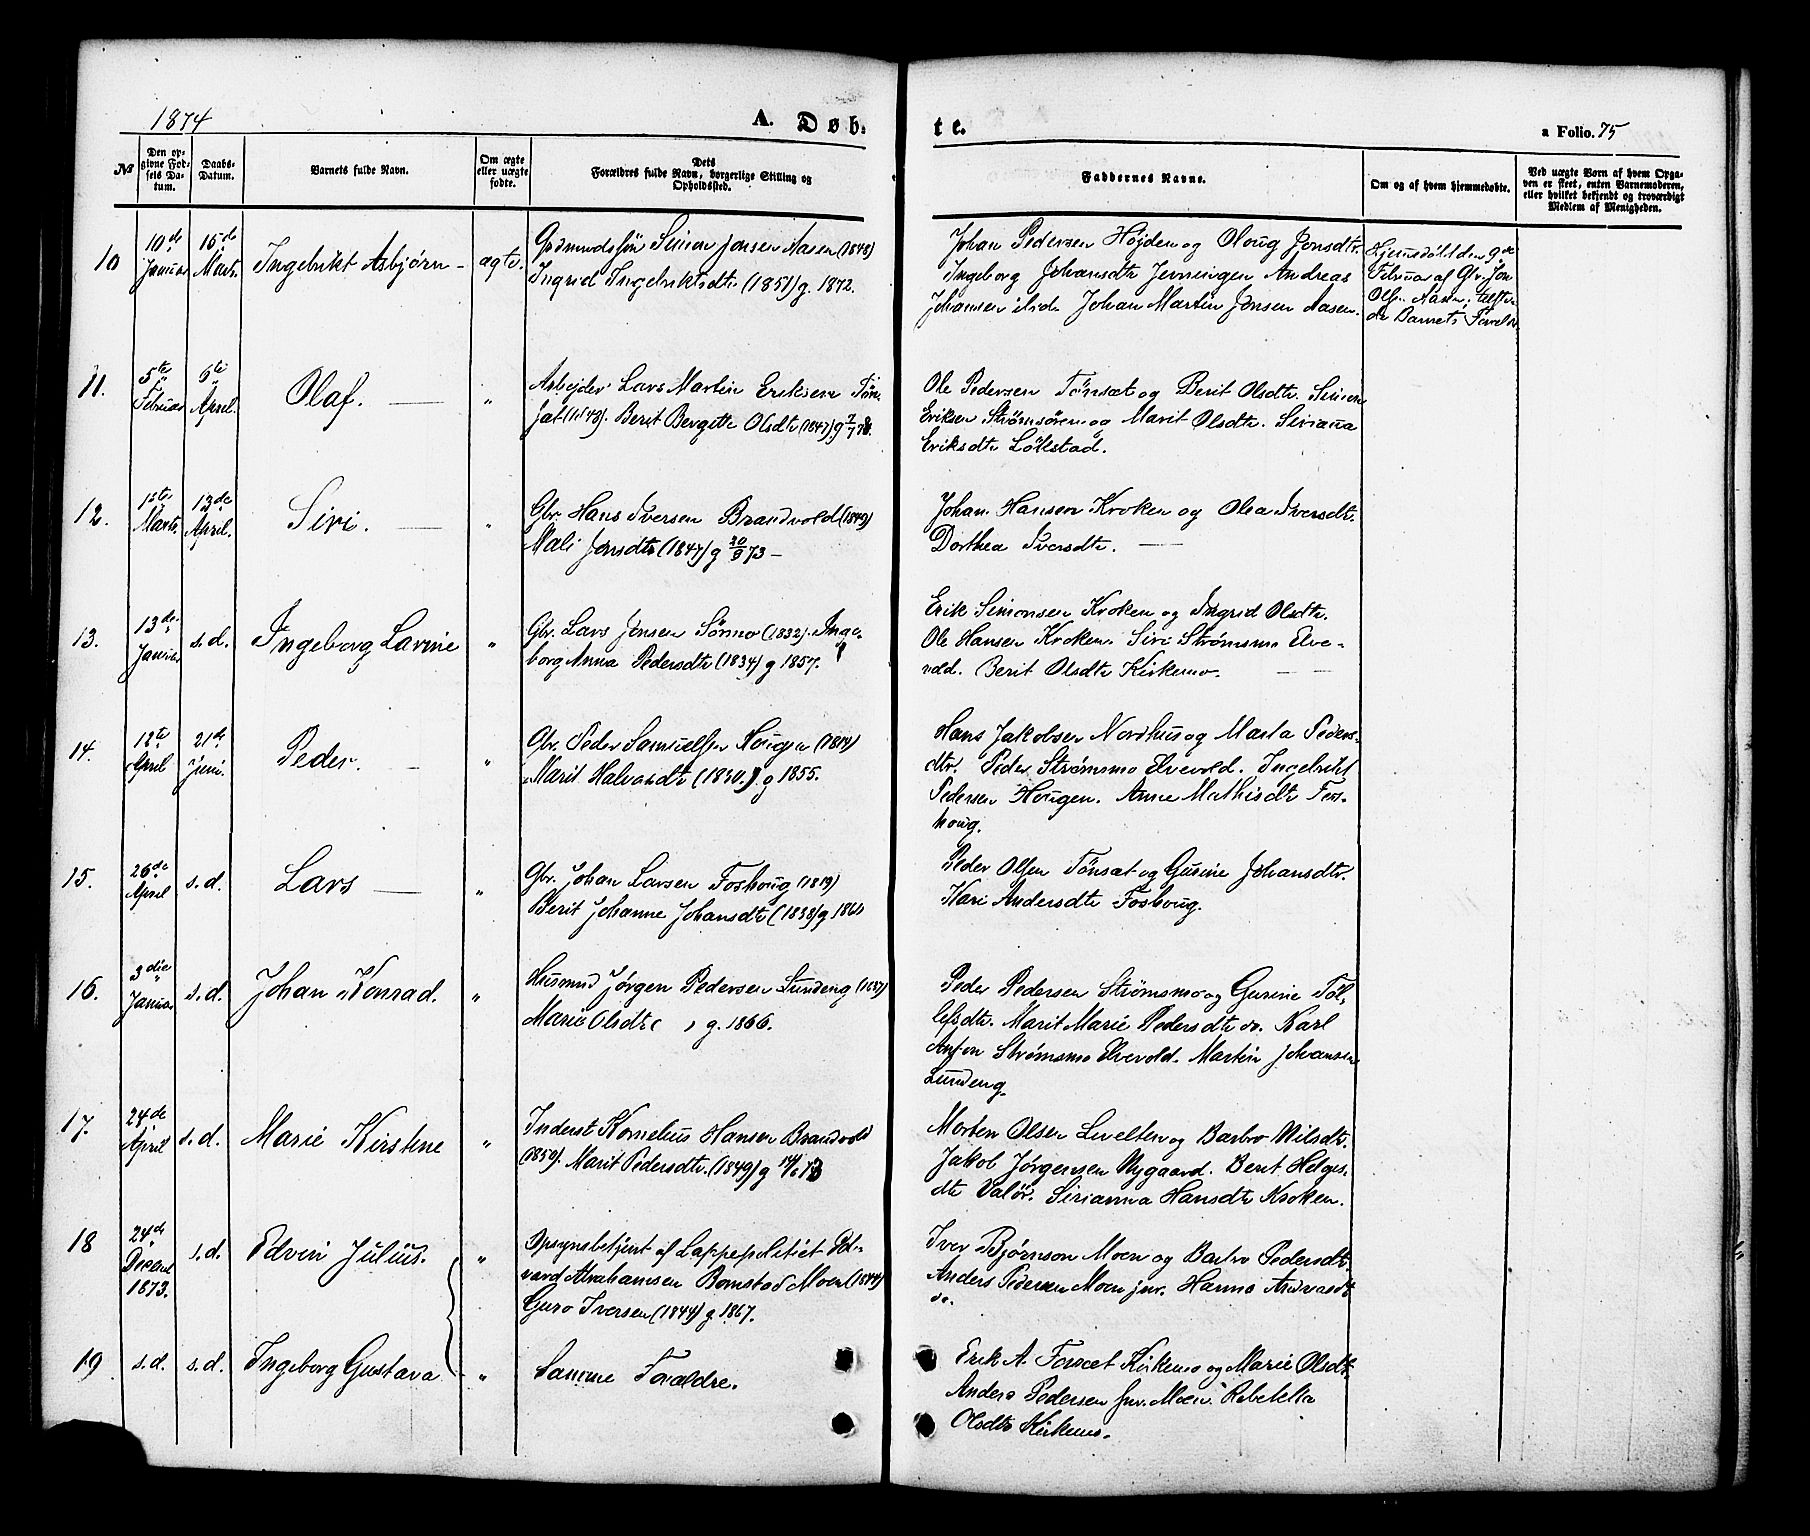 1874
A. Døb-
te.
a Folio. 75
№
Den op-
givne Fød-
sels Da-
tum.
Daabs-
Datum.
Barnets fulde Navn.
Om ægte
eller uægte
fødte.
Dets
Forældres fulde Navn, borgerlige Stilling og
Opholdssted.
Faddernes Navne.
Om og af hvem hjemmedøbt.
Ved uægte Børn af hvem Opga-
ven er skeet, enten Barnemoderen,
eller hvilket bekjendt og troværdigt
Medlem af Menigheden.
10
10de
Januar
15de
Marts.
Ingebrikt Asbjørn -
ægte.
Gaardmandssøn Simon Jonsen Aasen (1848)
Ingrid Ingebriktsdtr (1851) g. 1872.
Johan Pedersen Højden og Oloug Jonsdtr.
Ingeborg Johansdtr Jenningen Andreas
Johansen ibid. Johan Martin Jonsen Aasen.
Hjemmedøbt den 9de
Februar af Gbr. Jon
Ols. Aasen, 
de Barnets Foreldre
11.
5te
Februar
6te
April.
Olaf. —
"
Arbejder Lars Martin Eriksen Tøn-
sæt (1843). Berit Bergitte Olsdtr (1847) g 2/7 73.
Ole Pedersen Tønsæt og Berit Olsdtr. Simon
Eriksen Strømsøren og Marit Olsdtr. Sirianna
Eriksdtr Løkstad.
12.
1ste
Marts.
13de
April.
Siri. —
"
Gbr. Hans Iversen Brandvold (1849)
Mali Jonsdtr (1847) g 20/9 73 -
Johan Hansen Kroken og Olea Iversdtr.
Dorthea Iversdtr. —
13.
13de
Januar
s.d.
Ingeborg Lavine
"
Gbr. Lars Jonsen Sønmo (1832). Inge-
borg Anna Pedersdtr (1834) g 1857.
Erik Simonsen Kroken og Ingrid Olsdtr.
Ole Hansen Kroken. Siri Strømsmo Elve-
vold. Berit Olsdtr Kirkemo. — —
14.
12te
April
21de
Juni.
Peder. —
"
Gbr. Peder Samuelsen Hougen (1814)
Marit Halvorsdtr (1830.) g 1855.
Hans Jakobsen Nordhus og Marta Peders-
dtr. Peder Strømsmo Elvevold. Ingebrikt
Pedersen Hougen. Anne Mathisdtr Fos-
houg.
15.
26de
April
s.d.
Lars —
"
Gbr. Johan Larsen Foshoug (1819)
Berit Johanne Johansdtr (1838) g 1860
Peder Olsen Tønsæt og Gusine Johansdtr.
Kari Andersdtr Foshoug.
16.
3die
Januar
s.d.
Johan Konrad.
"
Husmand Jørgen Pedersen Lundeng (1837)
Marie Olsdtr ( ) g. 1866.
Peder Pedersen Strømsmo og Gurine Tøl-
lefsdtr. Marit Marie Pedersdtr do. Karl
Anton Strømsmo Elvevold. Martin Johansen
Lundeng.
17.
24de
April
s.d.
Marie Kirstene
"
Inderst Kornelius Hansen Brandvold
(1850). Marit Pedersdtr. (1849) g 14/6 73
Morten Olsen Levelten og Barbro Nilsdtr.
Jakob Jørgensen Nygaard. Berit Helges-
dtr Valør. Sirianna Hansdtr Kroken.
18
24de
Decembr
1873.
s.d.
Edvin Julius.
"
Opsynsbetjent af Lappepolitiet Ed-
vard Abrahamsen Bomstad Moen (1844)
Guro Iversen (1844) g. 1867.
Iver Bjørnson Moen og Barbro Pedersdtr.
Anders Pedersen Moen jun. Hanna Andreasdtr
do.
19
s.d.
s.d.
Ingeborg Gustava
"
Samme Forældre.
Erik A. Forsæt Kirkemo og Marie Olsdtr.
Anders Pedersen Jun. Moen. Rebekka
Olsdtr Kirkemo.